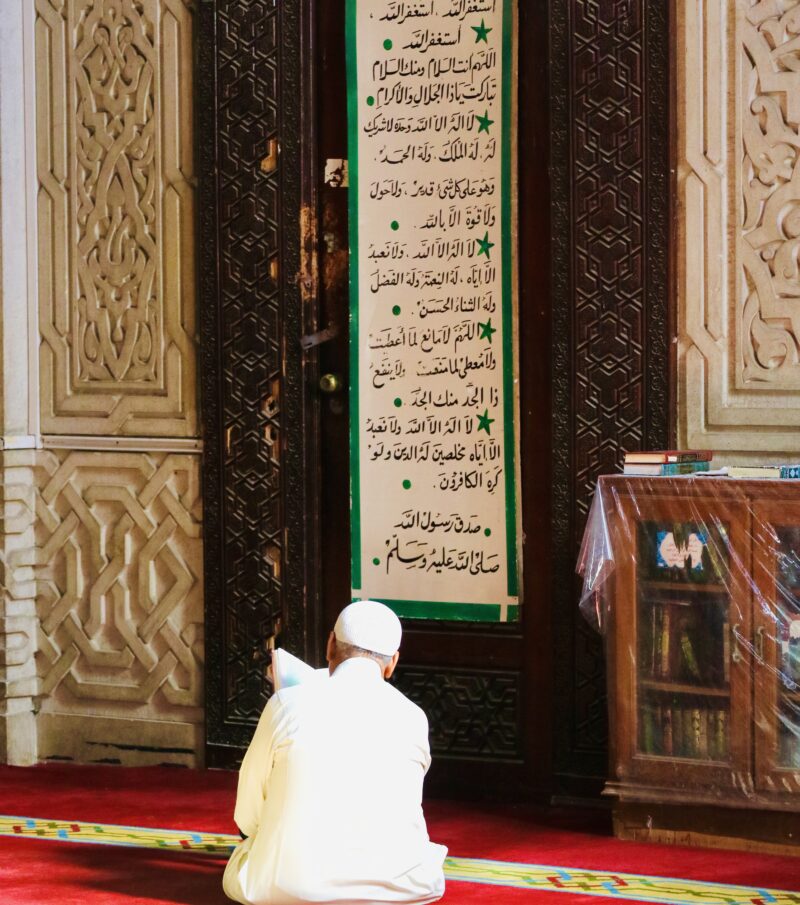 أستغفر اللّٰه ، أستغفر اللّٰه ،
أستغفر اللّٰه
اللّهم أنت السلام ومنك السلام
تباركت ياذا الجلال والأكرام
لا الهَ الاّ اللّٰه وَحدَه لاشريك
لهُ ، لهُ الملك ، ولهُ الحمد ،
وَهوَ على كل شئ قدير ، ولا حول
ولا قوة الاّ باللّٰه .
لا الهَ الاّ اللّٰه ، ولا نعبدُ
الاّ ايّاه ، لهُ النِعمَة ولهُ الفضلُ
ولهُ الثناءُ الحَسَن .
اللّهُمّ لا مَانعَ لما أعطيتَ
ولا مُعطىَ لما منَعتَ ولا ينفعُ
ذا الجَدّ منك الجَدّ .
لا الهَ الاّ اللّٰه ولا نَعبدُ
الاّ ايّاه مخلصين لهُ الدين ولوْ
كرِهَ الكافرُونَ .
صَدَق رسُول اللّٰه
صَلىّ اللّٰه عَليهْ وسَلمّْ .